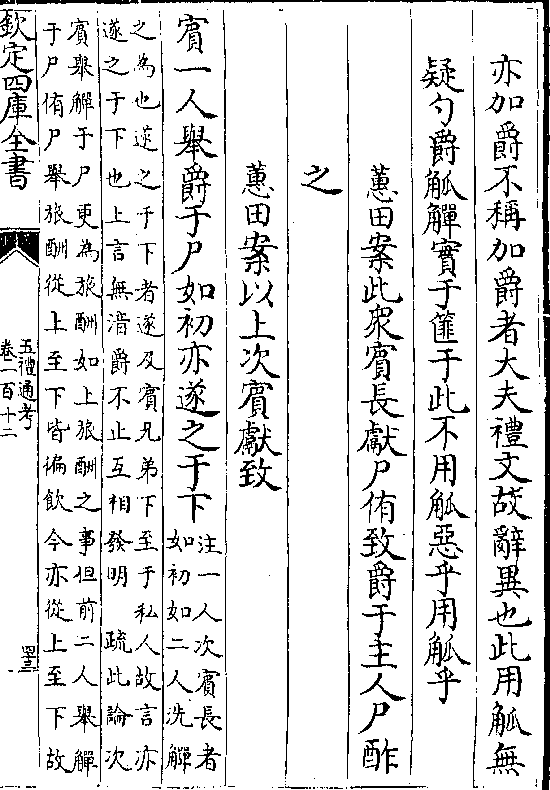 亦加爵不稱加爵者大夫禮文故辭異也此用觚無
疑勺爵觚觶實于篚于此不用觚惡乎用觚乎
蕙田案此衆賓長獻尸侑致爵于主人尸酢
之
蕙田案以上次賓獻致
賓一人舉爵于尸如初亦遂之于下
注一人次賓長者
如初如二人洗觶
之為也遂之于下者遂及賓兄弟下至于私人故言亦
遂之于下也上言無湆爵不止互相發明 疏此論次
賓舉觶于尸更為旅酬如上旅酬之事但前二人舉觶
于尸侑尸舉旅酬從上至下皆徧飲今亦從上至下故
欽定四庫全書
五禮通考
卷一百十二